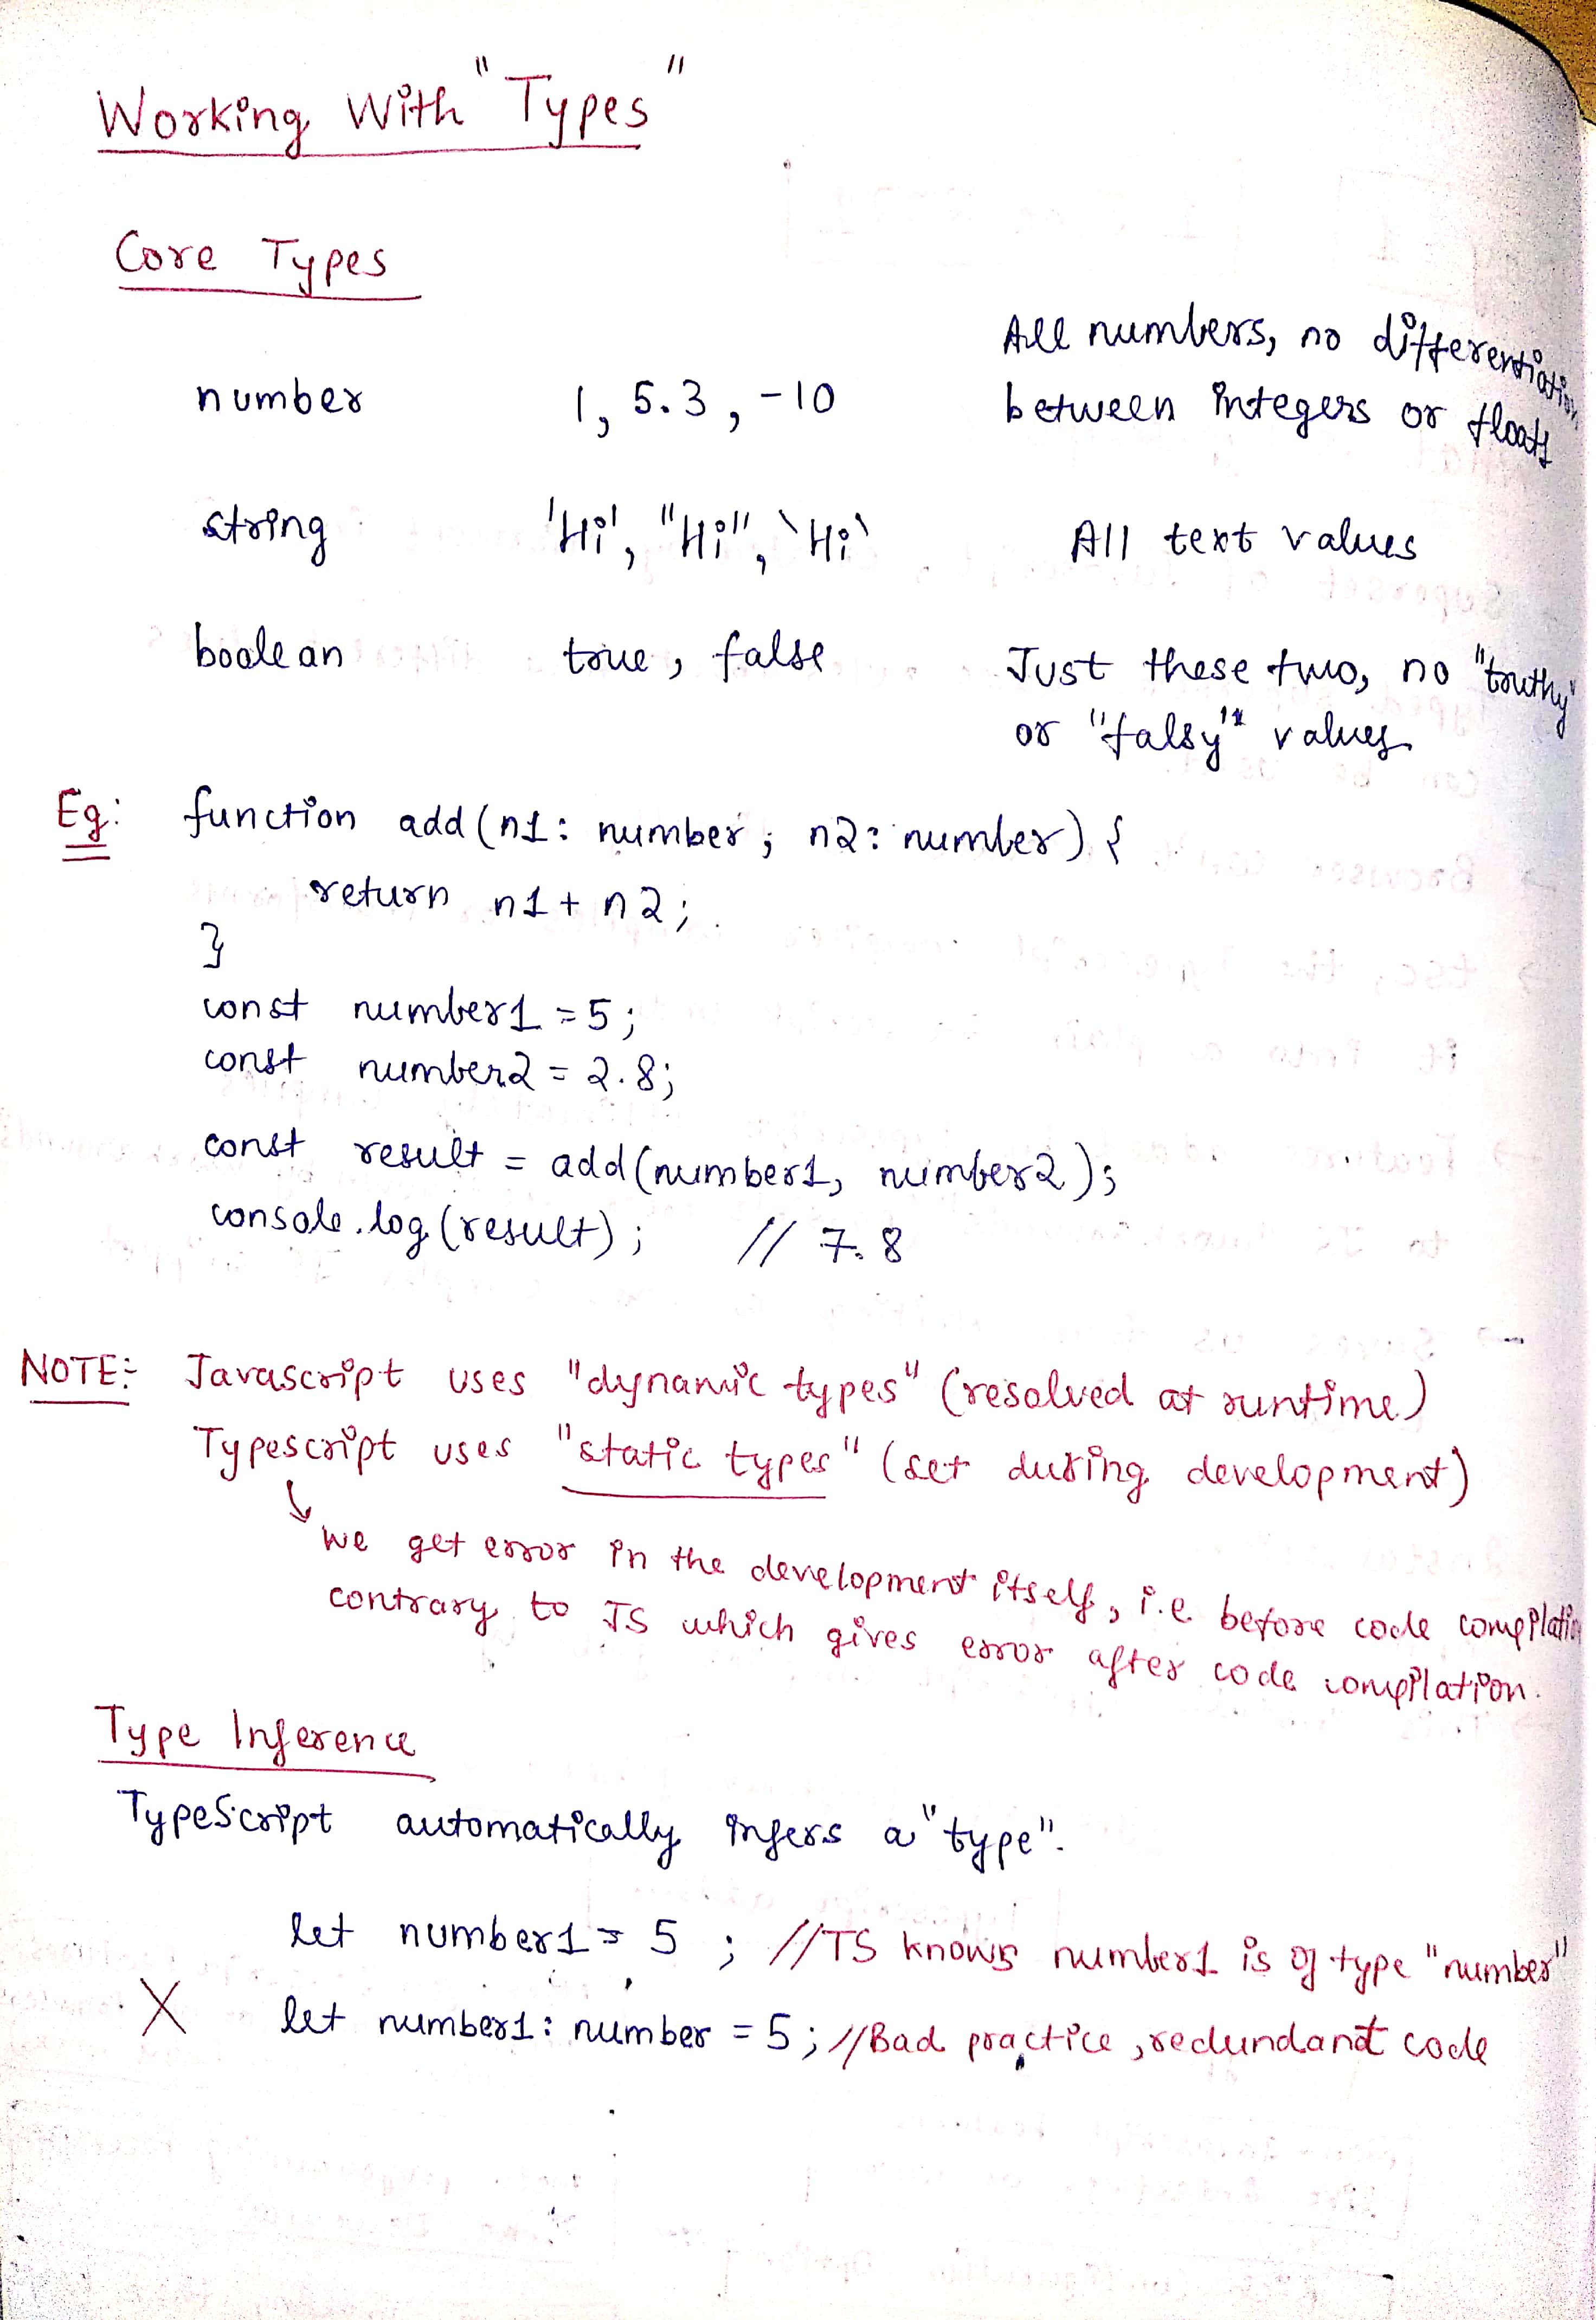 Working With "Types"
Core Types
number 1, 5.3, -10 All numbers, no differentiation
between integers or floats
string 'Hi', "Hi", `Hi` All text values
boolean true, false Just these two, no "truthy"
or "falsy" values
Eg: function add(n1: number; n2: number) {
return n1 + n2;
}
const number1 = 5;
const number2 = 2.8;
const result = add(number1, number2);
console.log(result); // 7.8
NOTE: Javascript uses "dynamic types" (resolved at runtime)
Typescript uses "static types" (set during development)
↳ we get error in the development itself, i.e. before code compilation
contrary to JS which gives error after code compilation.
Type Inference
TypeScript automatically infers a "type".
let number1 = 5 ; //TS knows number1 is of type "number"
X let number1: number = 5; //Bad practice, redundant code